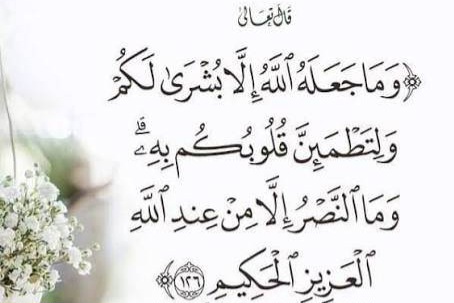 قال تعالى
﴿وَمَا جَعَلَهُ ٱللَّهُ إِلَّا بُشْرَىٰ لَكُمْ
وَلِتَطْمَئِنَّ قُلُوبُكُم بِهِۦ ۗ
وَمَا ٱلنَّصْرُ إِلَّا مِنْ عِندِ ٱللَّهِ
ٱلْعَزِيزِ ٱلْحَكِيمِ ١٢٦﴾